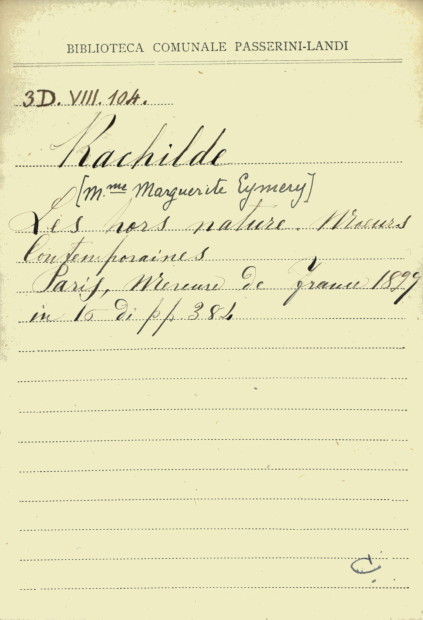 BIBLIOTECA COMUNALE PASSERINI-LANDI
3D. VIII. 104.
Rachilde
[M.me Marguerite Eymery]
Les hors nature. Moeurs
Contemporaines
Paris, Mercure de France 1899
in 16 di pp 384
C.